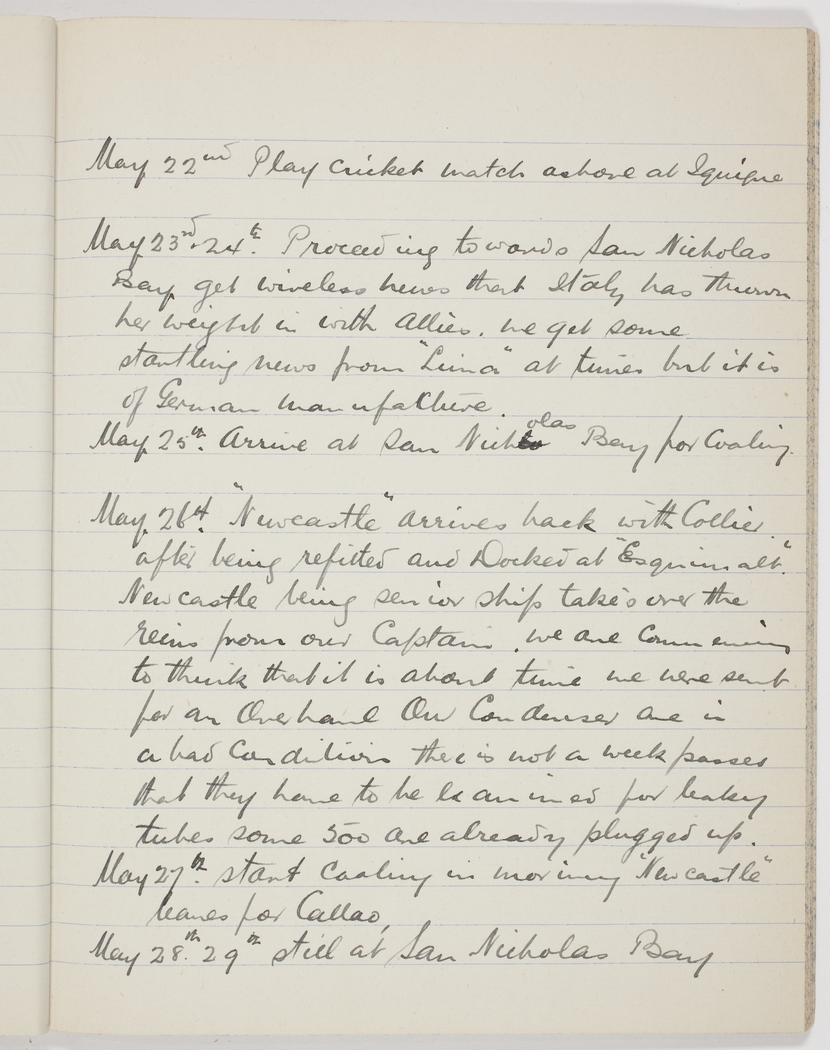 May 22nd Play cricket match ashore at Iquique
May 23rd. 24th. Proceeding towards San Nicholas
Bay get wireless news that Italy has thrown
her weight in with Allies. we get some
startling news from "Lima" at times but it is
of German manufacture.
May 25th. Arrive at San Nicholas Bay for Coaling.
May 26th. "Newcastle" arrives back with Collier.
after being refitted and Docked at "Esquimalt".
Newcastle being senior ship takes over the
reins from our Captain. we are Commencing
to think that it is about time we were sent
for an Overhaul Our Condenser are in
a bad Condition there is not a week passes
that they have to be examined for leaky
tubes some 500 are already plugged up.
May 27th. start Coaling in morning "Newcastle"
leaves for Callao,
May 28th. 29th still at San Nicholas Bay